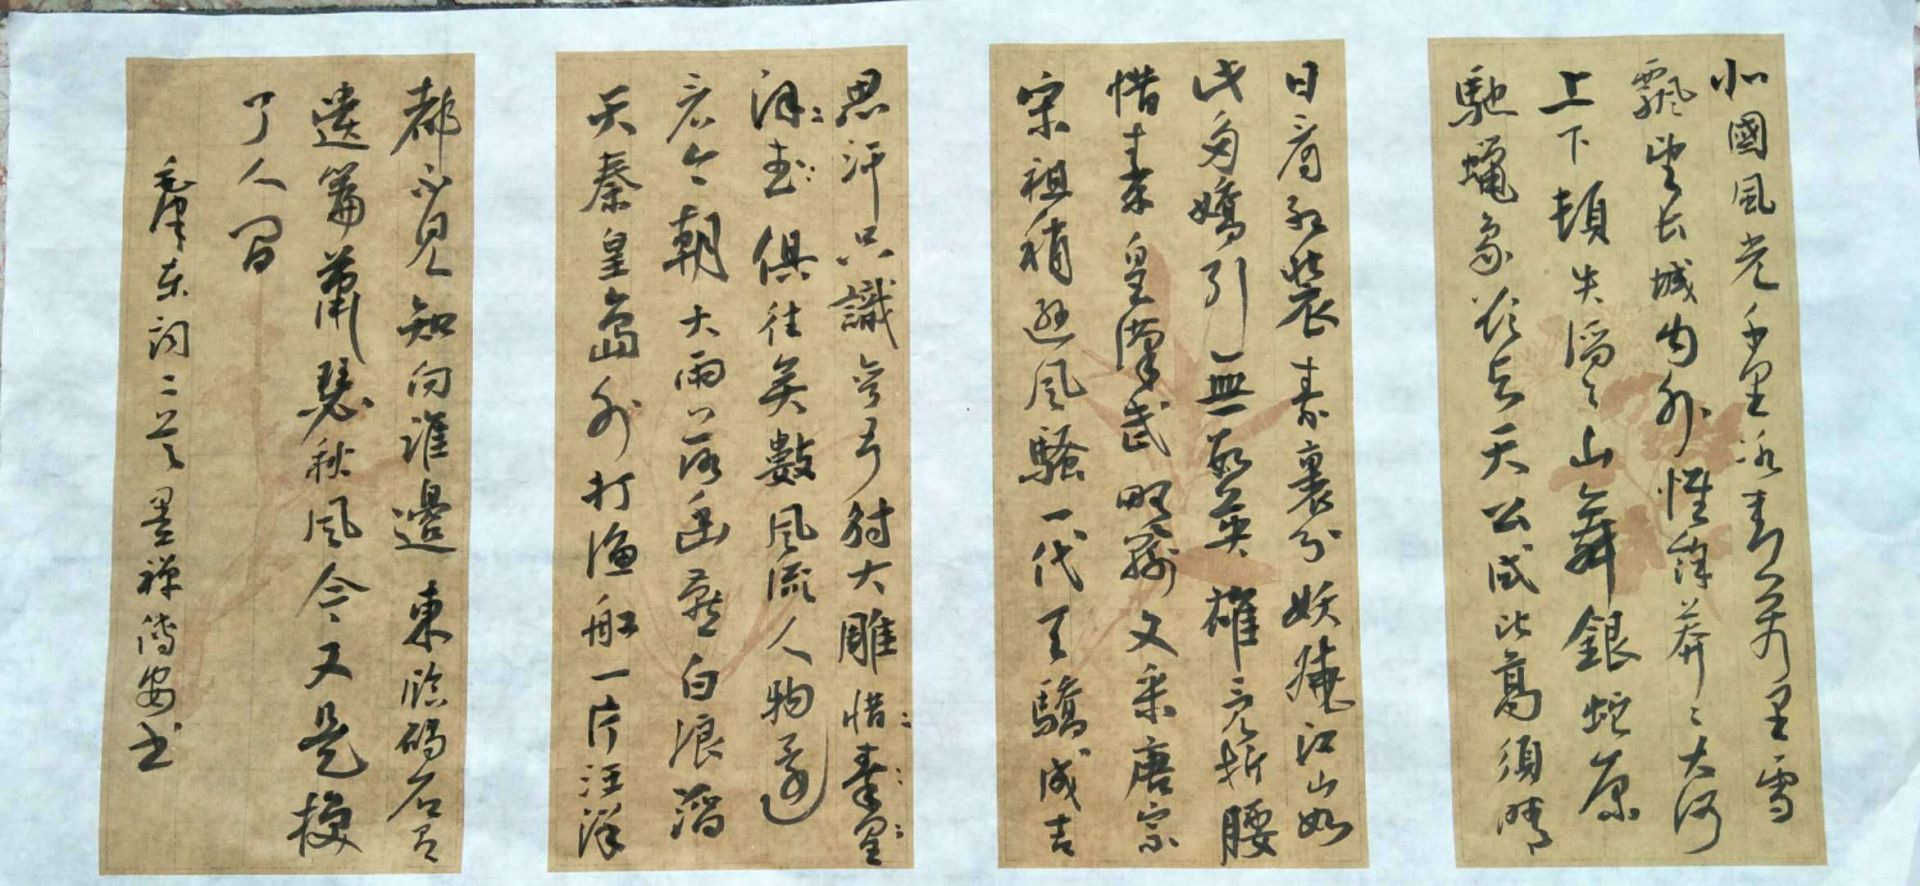 北國風光千里冰封萬里雪
飄望長城內外惟餘莽〻大河
上下頓失滔〻山舞銀蛇原
馳蠟象欲與天公試比高須晴
日看紅裝素裹分妖嬈江山如
此多嬌引無數英雄競折腰
惜秦皇漢武略輸文采唐宗
宋祖稍遜風騷一代天驕成吉
思汗只識彎弓射大雕惜秦皇
漢武俱往矣數風流人物還
看今朝大雨落幽燕白浪滔
天秦皇島外打漁船一片汪洋
都不見知向誰邊東臨碣石有
遺篇蕭瑟秋風今又是換
了人間
毛澤東詞二首墨禪傳安書